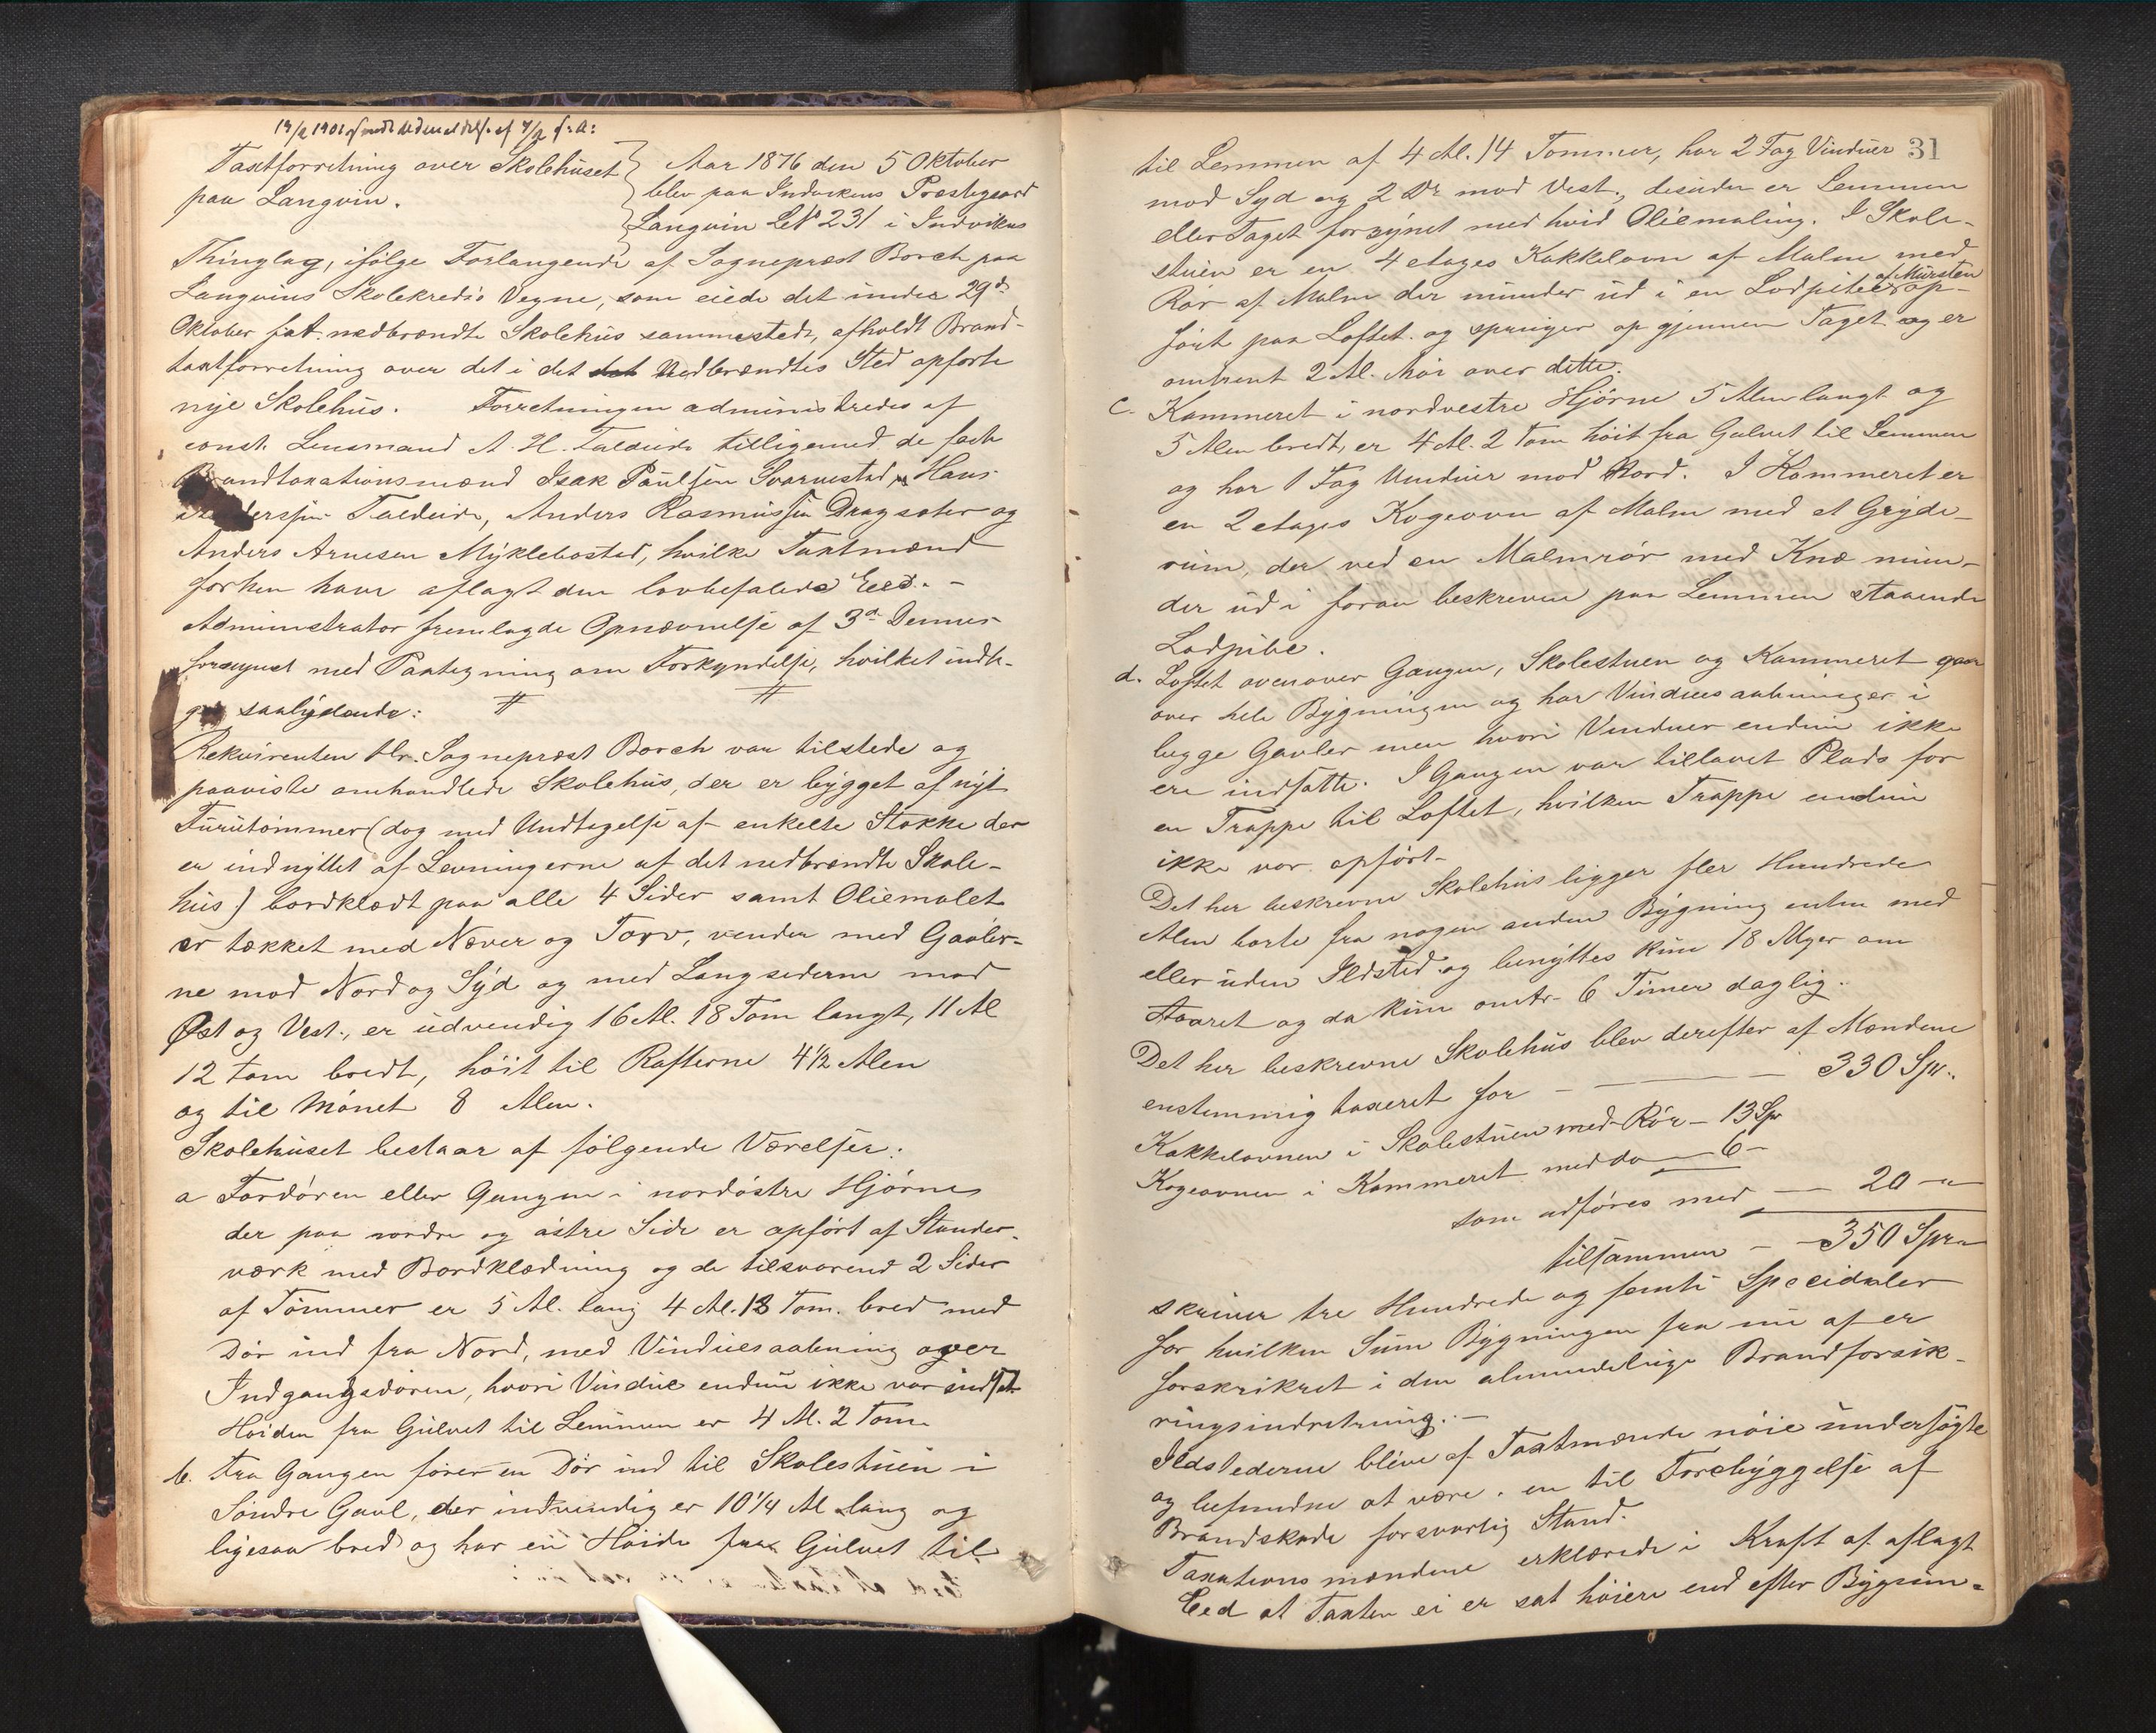 Taxtforretning over Skolehuset
paa Langvin.
Aar 1876 den 5 Oktober
blev paa Indvikens Præstegaard
Langvin LNo 231 i Indvikens
Thinglag, ifølge Forlangende af Sognepræst Borch paa
Langvins Skolekreds's Vegne, som eiede det under 29de
Oktober f.A. nedbrændte Skolehus sammesteds, afholdt Brand-
taxtforretning over det i det det Nedbrændtes Sted opførte
nye Skolehus. Forretningen administreredes af
const. Lensmand A. H. Taldeide tilligemed de faste
Brandtaxationsmænd Isak Paulsen Svarvestad, Hans
Taldeide, Anders Rasmussen Dragsæter og
Anders Arnesen Myklebostad, hvilke Taxtmænd
forhen have aflagt den lovbefalede Eed. -
Administrator fremlagde Opnævnelse af 3de Dennes
forsynet med Paategning om Forkyndelse, hvilket indta-
ges saalydende: # #
Rekvirenten Hr. Sognepræst Borch var tilstede og
paaviste omhandlede Skolehus, der er bygget af nyt
Furutømmer (dog med Undtagelse af enkelte Stokke der
er indnyttet af Levningerne af det nedbrændte Skole-
hus) bordklædt paa alle 4 Sider samt Oliemalet
er tækket med Næver og Torv, vender med Gavler-
ne mod Nord og Syd og med Langsiderne mod
Øst og Vest, er udvendig 16 Al. 18 Tom langt, 11 Al
12 tom bredt, høit til Rafterne 4 1/2 Alen
og til Mønet 8 Alen.
Skolehuset bestaar af følgende Værelser:
a Fordøren eller Gangen i nordøstre Hjørne
der paa nordre og østre Side er opført af Stander-
værk med Bordklædning og de tilsvarend 2 Sider
af Tømmer er 5 Al. lang 4 Al. 18 Tom. bred med
Dør ind fra Nord, med Vinduesaabning over
Indgangsdøren, hvori Vindue endnu ikke var indsat
Høiden fra Gulvet til Lemmen er 4 Al. 2 Tom
b. Fra Gangen fører en Dør ind til Skolestuen i
Søndre Gavl, der indvendig er 10 1/4 Al lang og
ligesaa bred og har en Høide fra Gulvet til
31
til Lemmen af 4 Al. 14 Tommer, har 2 Fag Vinduer
mod Syd og 2 Do mod Vest; desuden er Lemmen
eller Taget forsynet med hvid Oliemaling. I Skole-
stuen er en 4 etages Kakkelovn af Malm med
Rør af Malm der munder ud i en Lodpibe af Mursten op-
ført paa Loftet og springer op gjennem Taget og er
omtrent 2 Al. høi over dette.
c. Kammeret i nordvestre Hjørne 5 Alen langt og
5 Alen bredt, er 4 Al. 2 Tom høit fra Gulvet til Lemmen
og har 1 Fag Vinduer mod Nord. I Kammeret er
en 2 etages Kogeovn af Malm med et Gryde-
rum, der ved en Malmrør med Knæ mun-
der ud i foran beskrevne paa Lemmen staaende
Lodpibe.
d. Loftet ovenover Gangen, Skolestuen og Kammeret gaar
over hele Bygningen og har Vinduesaabninger i
begge Gavler men hvori Vinduer endnu ikke
ere indsatte. I Gangen var tillavet Plads for
en Trappe til Loftet, hvilken Trappe endnu
ikke var opført.
Det her beskrevne Skolehus ligger fler Hundrede
Alen borte fra nogen anden Bygning enten med
eller uden Ildsted og benyttes kun 18 Uger om
Aaret og da kun omtr. 6 Timer daglig.
Det her beskrevne Skolehus blev derefter af Mændene
enstemmig taxeret for - 330 Spd.
Kakkelovnen i Skolestuen med Rør - 13 Sp
Kogeovnen i Kammeret med do - 6 -
som udføres med - 20 -
tilsammen - 350 Spd
skriver tre Hundrede og femti Speciedaler
for hvilken Sum Bygningen fra nu af er
forsikret i den almindelige Brandforsik-
ringsindretning. -
Ildstederne bleve af Taxtmændene nøie undersøgte
og befundne at være i en til Forebyggelse af
Brandskade forsvarlig Stand.
Taxationsmændene erklærede i Kraft af aflagt
Eed at Taxten ei er sat høiere end efter Bygnin-